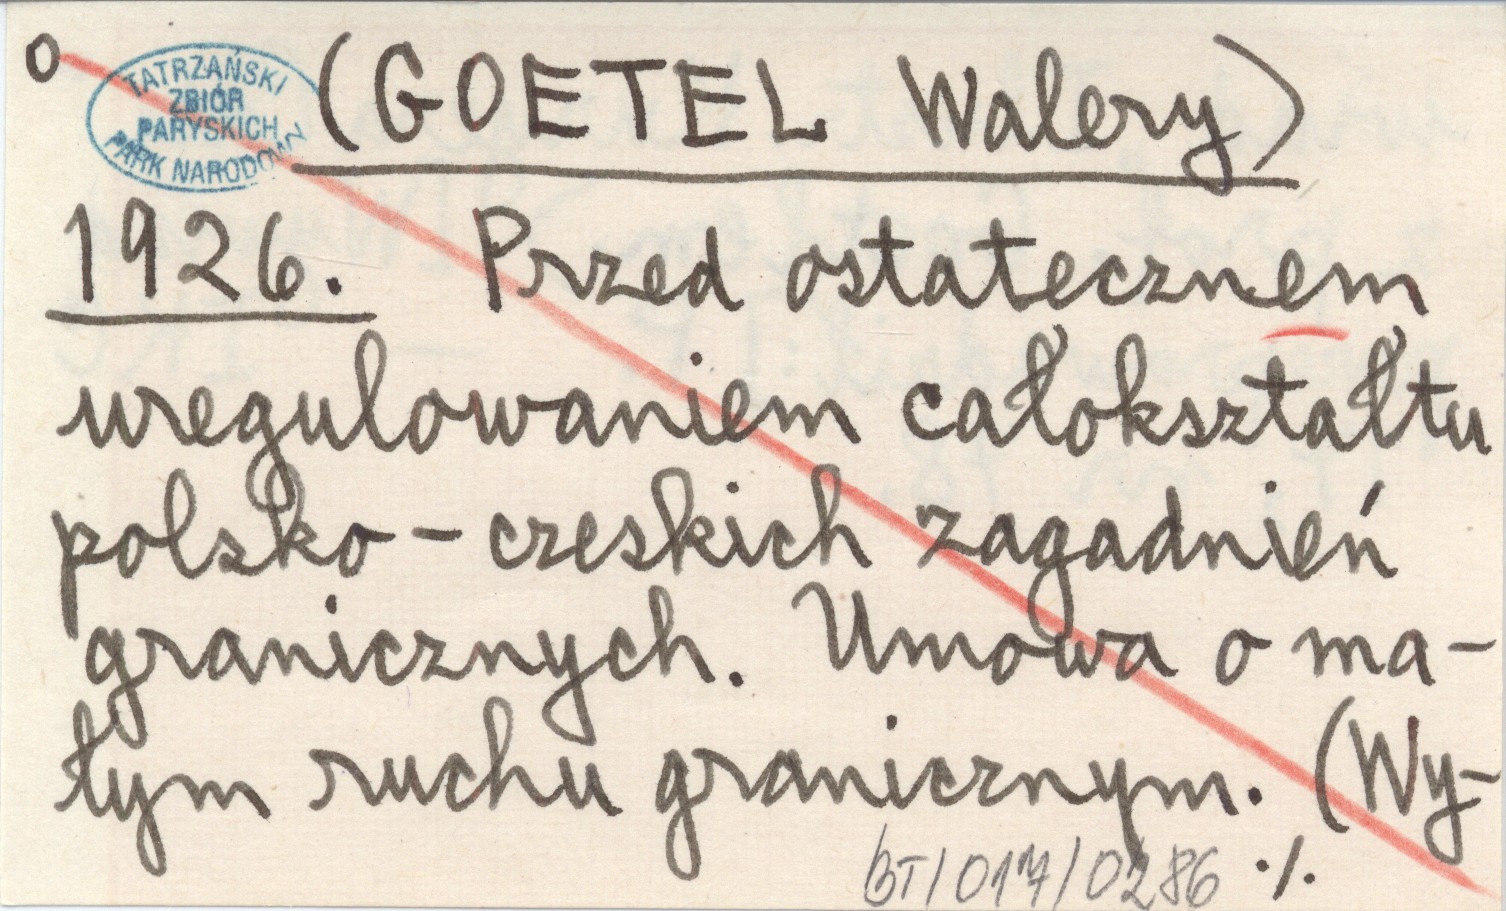 o
TATRZAŃSKI
ZBIÓR
PARYSKICH
PARK NARODOWY
(GOETEL Walery)
1926. Przed ostatecznem
uregulowaniem całokształtu
polsko-czeskich zagadnień
granicznych. Umowa o ma-
łym ruchu granicznym. (Wy-
BT/017/0286 ./.